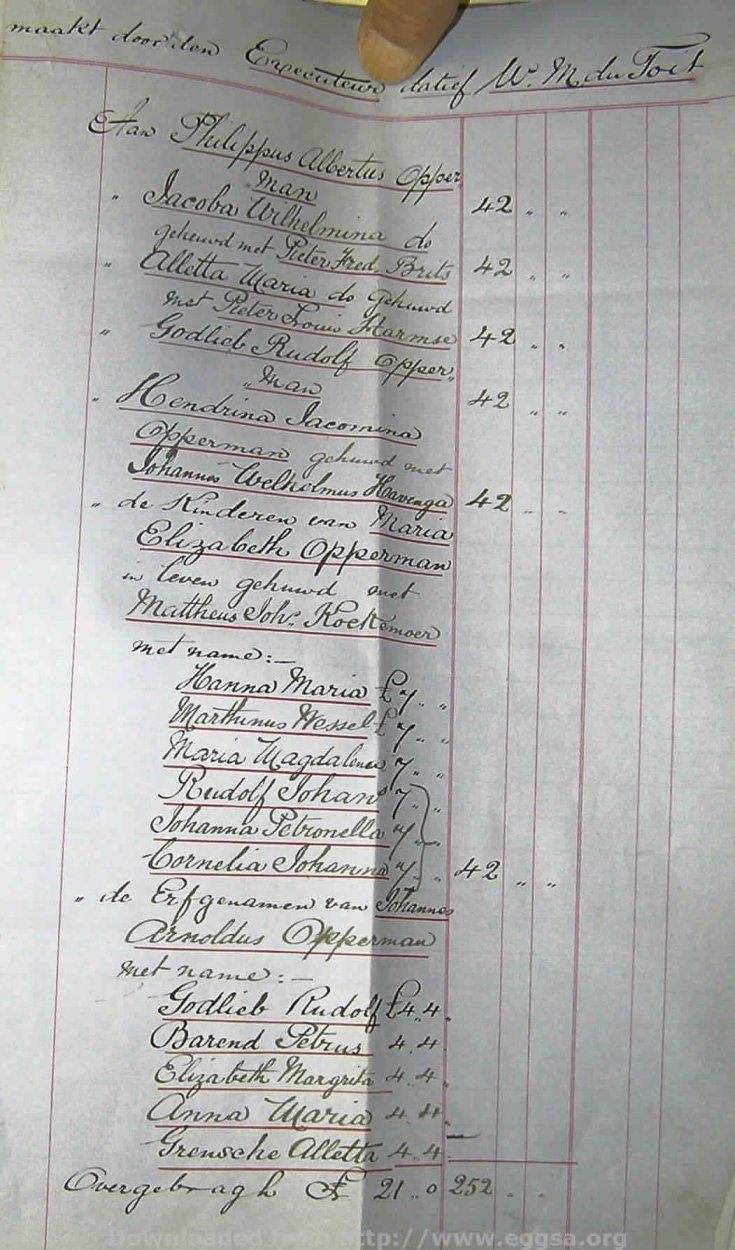 maakt door den Executeur datief W. M. du Toit
Aan Philippus Albertus Opper
"man 42 " "
" Jacoba Wilhelmina do
gehuwd met Pieter Fred. Brits 42 " "
" Alletta Maria do gehuwd
met Pieter Louis Harmse 42 " "
" Godlieb Rudolf Opper"
"man 42 " "
" Hendrina Jacomina
Opperman gehuwd met
Johannes Welhelmus Havenga 42 " "
" de Kinderen van Maria
Elizabeth Opperman
in leven gehuwd met
Mattheus Johs. Kockemoer
met name:—
Hanna Maria £7 " "
Marthinus Wessel £7 " "
Maria Magdalena 7 " "
Rudolf Johans 7 " "
Johanna Petronella 7 " "
Cornelia Johanna 7 " " 42 " "
" de Erfgenamen van Johannes
Arnoldus Opperman
met name:—
Godlieb Rudolf £4 " 4 "
Barend Petrus 4 " 4 "
Elizabeth Margrita 4 " 4 "
Anna Maria 4 " 4 "
Grensche Alletta 4 " 4 " —
Overgebragh £ 21 " 0 252 " "
Downloaded from http://www.eggsa.org